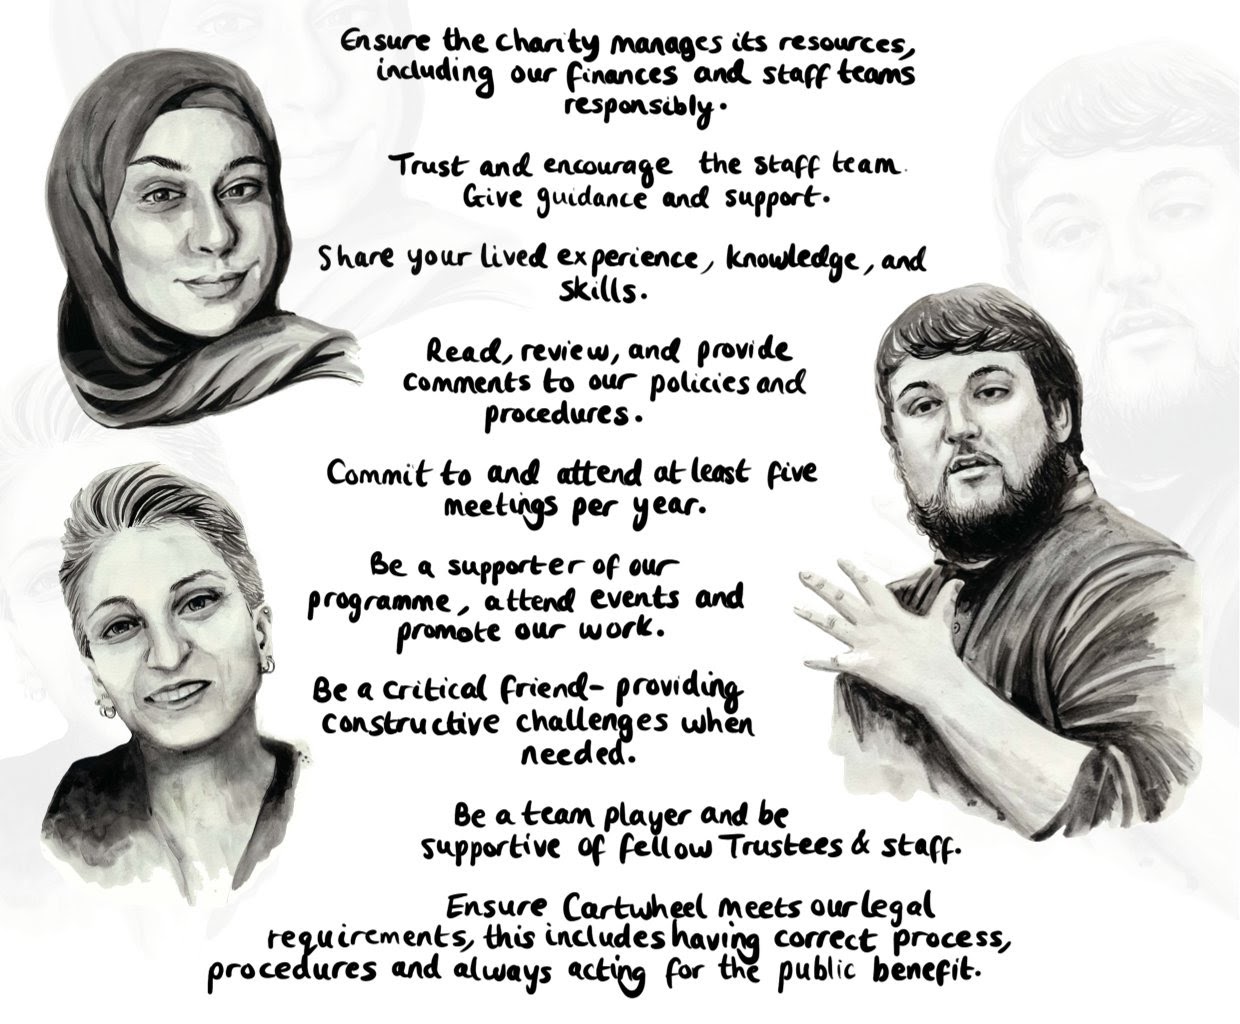 Ensure the charity manages its resources,
including our finances and staff teams
responsibly.
Trust and encourage the staff team.
Give guidance and support.
Share your lived experience, knowledge, and
skills.
Read, review, and provide
comments to our policies and
procedures.
Commit to and attend at least five
meetings per year.
Be a supporter of our
programme, attend events and
promote our work.
Be a critical friend- providing
constructive challenges when
needed.
Be a team player and be
supportive of fellow Trustees & staff.
Ensure Cartwheel meets our legal
requirements, this includes having correct process,
procedures and always acting for the public benefit.